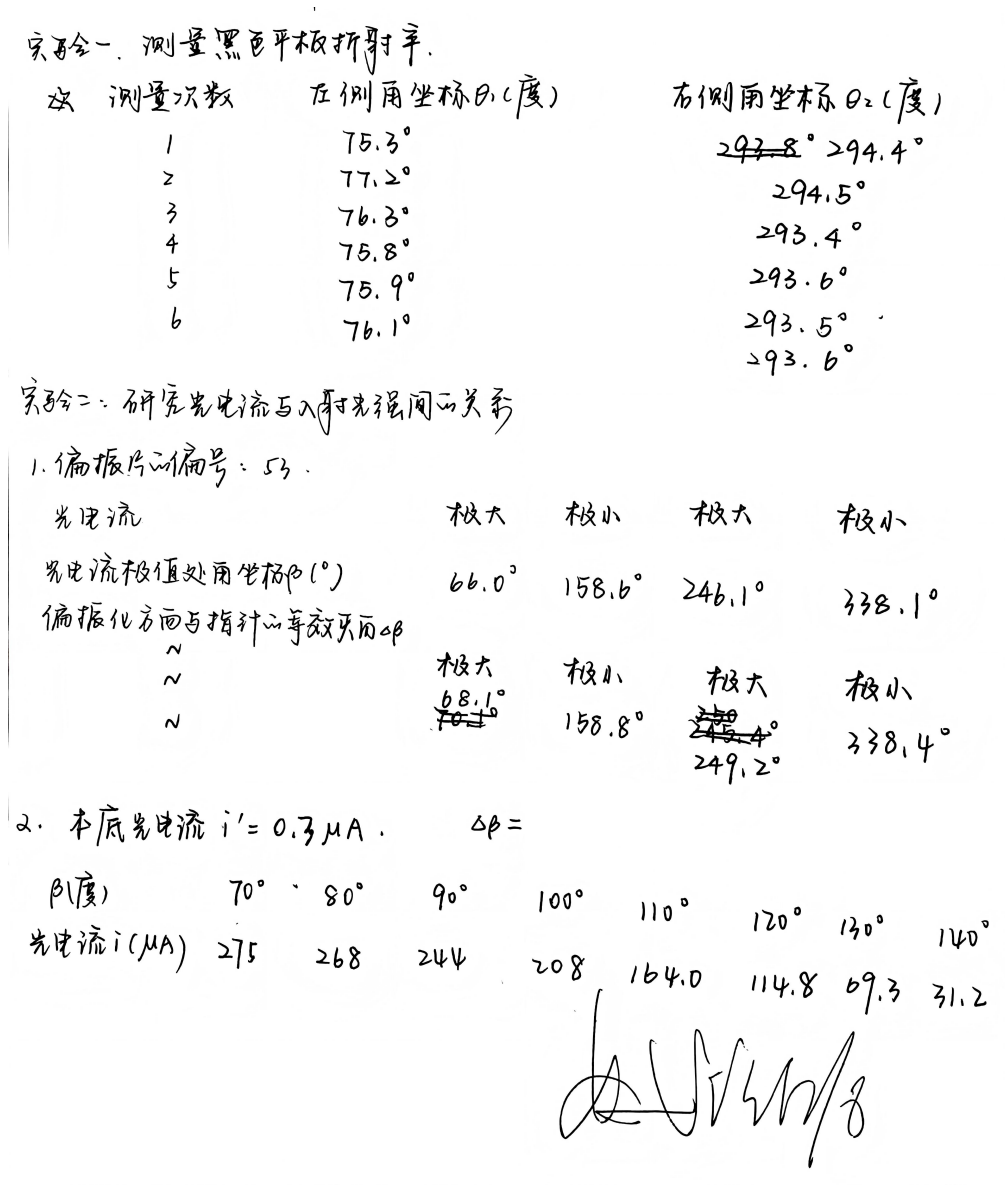 实验一. 测量黑色平板折射率.
次 测量次数 左侧角坐标θ₁(度) 右侧角坐标θ₂(度)
1 75.3° 293.8° 294.4°
2 77.2° 294.5°
3 76.3° 293.4°
4 75.8° 293.6°
5 75.9° 293.5°
6 76.1° 293.6°
实验二: 研究光电流与入射光强间的关系
1. 偏振片的偏号: 53.
光电流 极大 极小 极大 极小
光电流极值处角坐标β(°) 66.0° 158.6° 246.1° 338.1°
偏振化方向与指针的等效夹角Δβ
~ 极大 极小 极大 极小
~ 68.1°
~ 70.1° 158.8° 245.4° 338.4°
249.2°
2. 本底光电流 i′= 0.3μA. Δβ=
β(度) 70° 80° 90° 100° 110° 120° 130° 140°
光电流i(μA) 275 268 244 208 164.0 114.8 69.3 31.2